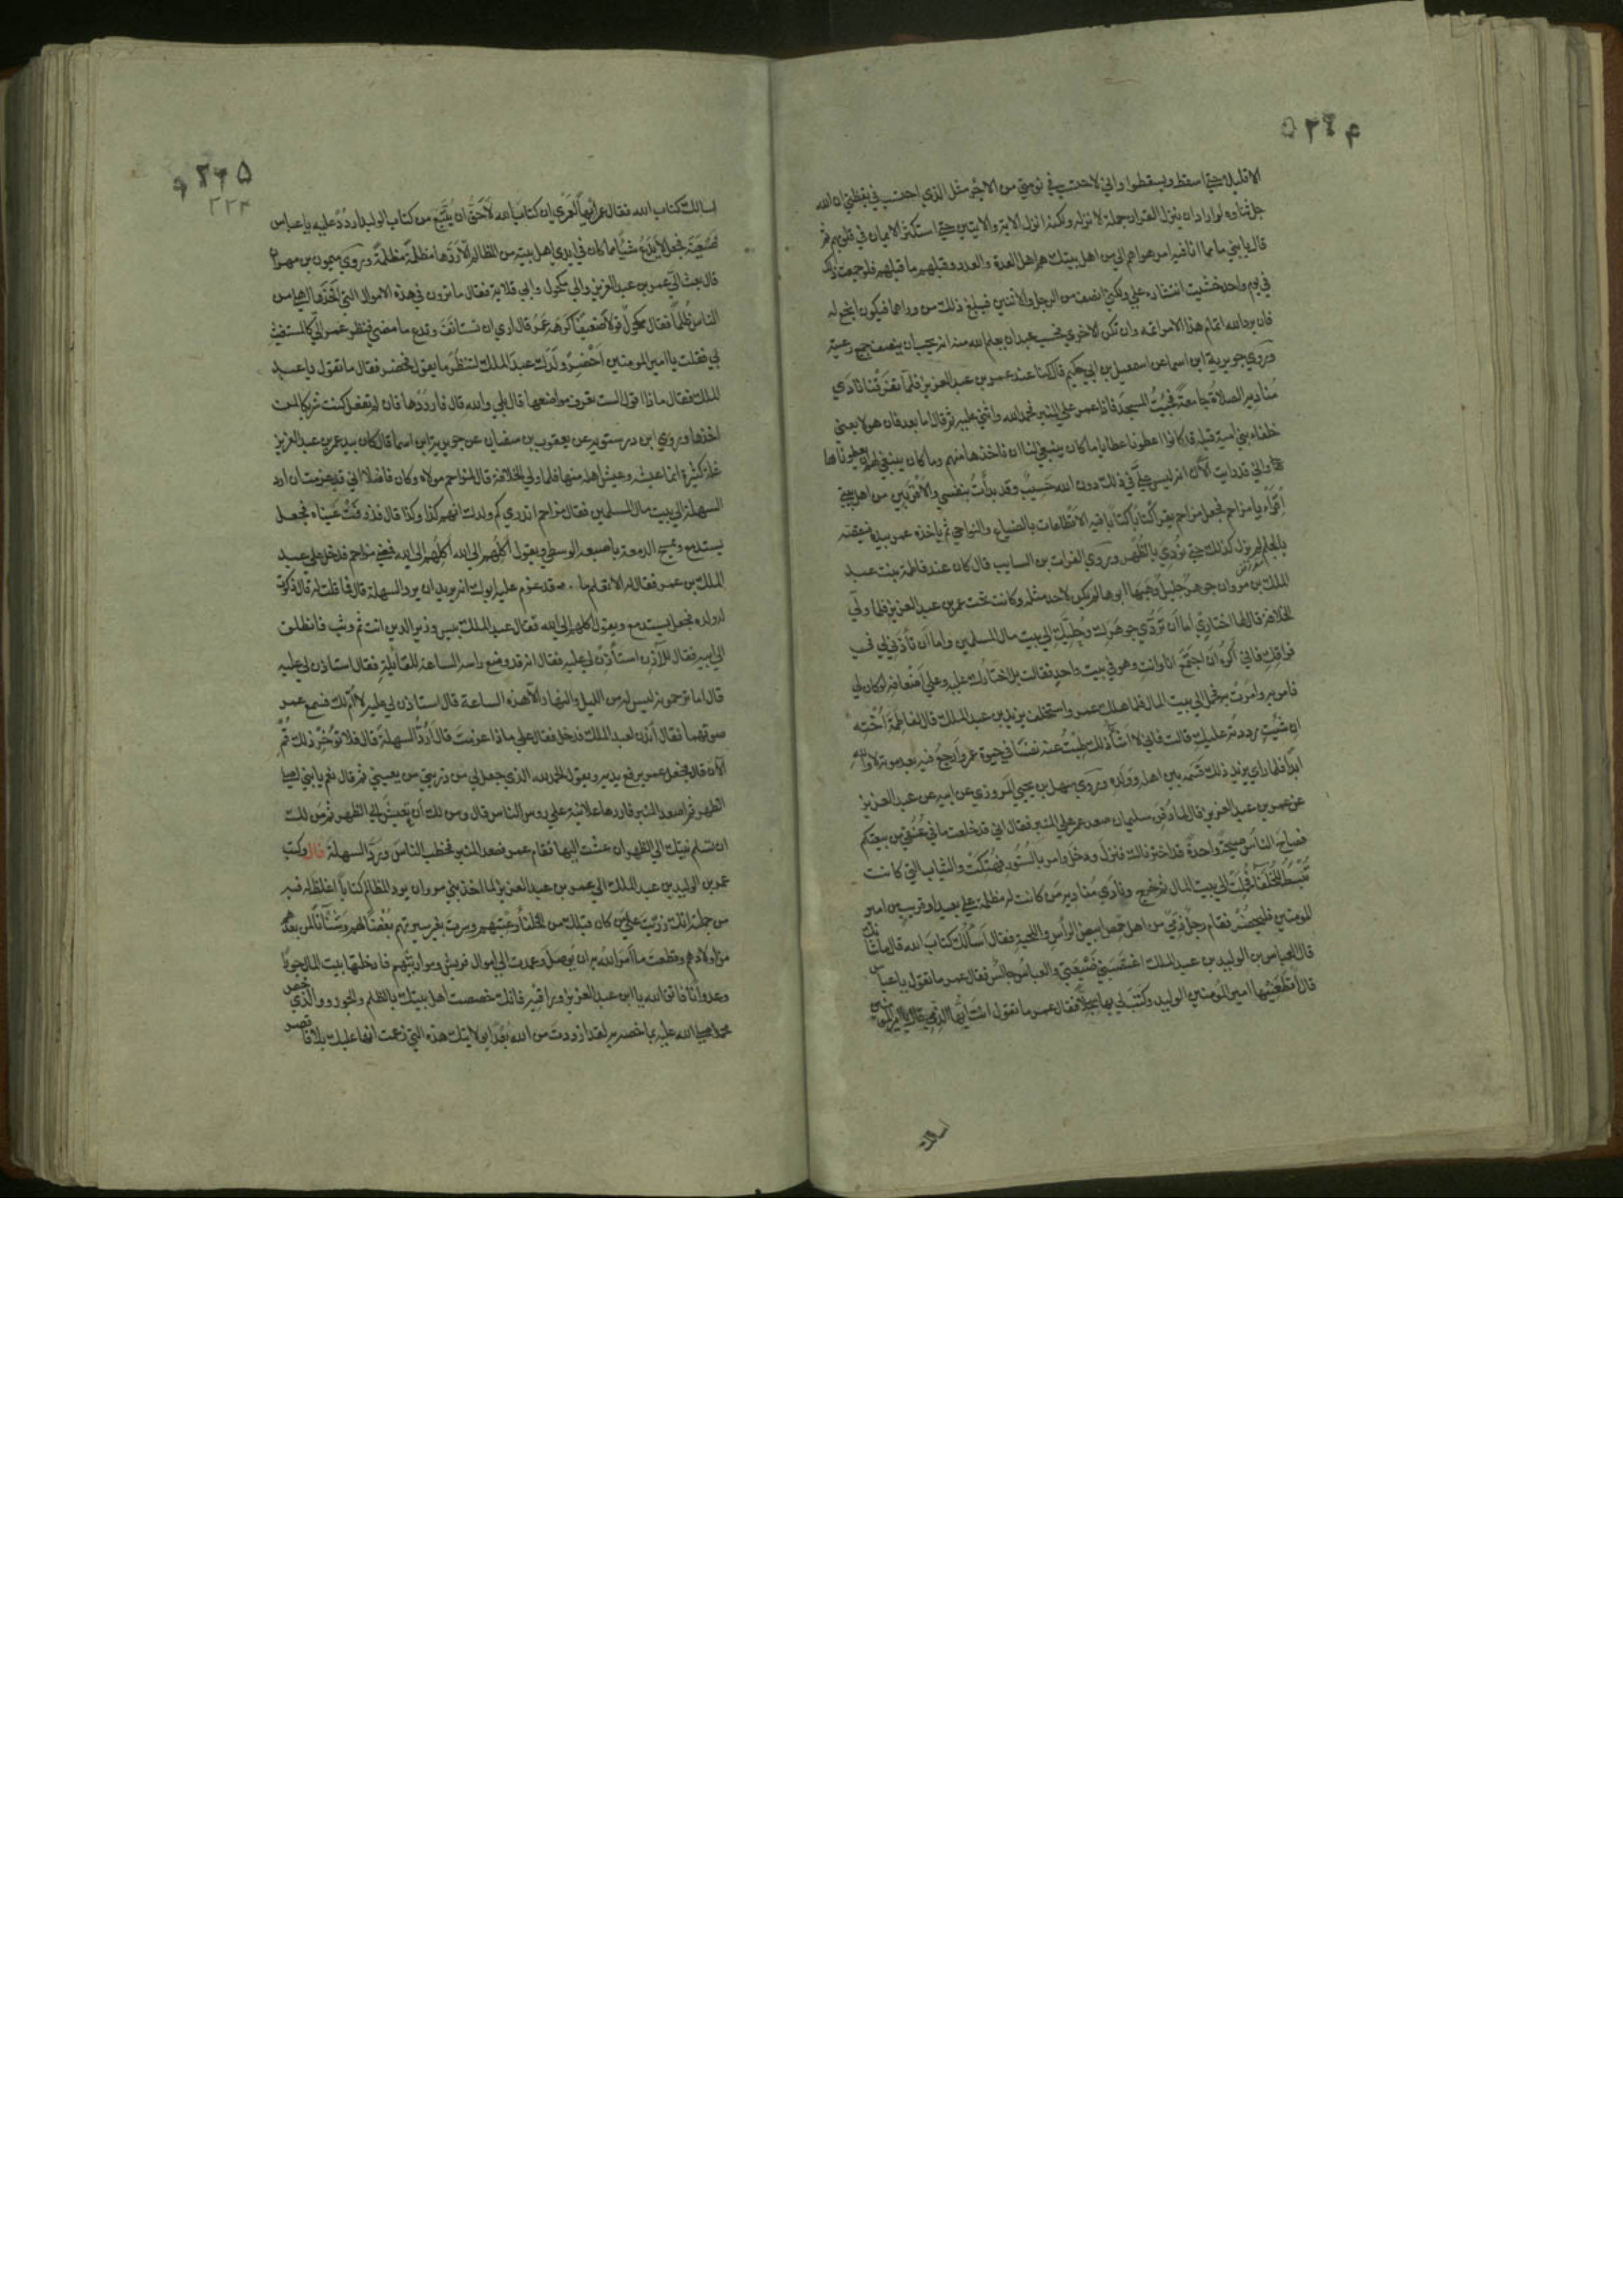 ۵۲۶۴
الا قليلا حتى اسقط ويسقطوا واني لاحتسب في نومتي من الاجر مثل الذي احتسب في يقظتي ان الله
جل ثناوه لو اراد ان ينزل القران جملة لانزله ولكنه انزل الاية والايتين حتى استكن الايمان في قلوبهم ثم
قال يا بني ما مما انا فيه امر هو اهم الي من اهل بيتك هم اهل العدة والعدد وقبلهم ما قبلهم فلو جمعت ذلك
في يوم واحد خشيت انتشاره علي ولكني انصف من الرجل والاثنين فيبلغ ذلك من وراهما فيكون انجع له
فان يرد الله اتمام هذا الامر اتمه وان تكن الاخري فحسب عبد ان يعلم الله منه انه يحب ان ينصف جميع رعيته
وروي جويرية ابن اسما عن اسمعيل بن ابي حكيم قال كنا عند عمر بن عبد العزيز فلما تفرقنا نادي
مناديه الصلاة جامعة فجيت المسجد فاذا عمر علي المنبر فحمد الله واثني عليه ثم قال اما بعد فان هولا يعني
خلفاء بني امية قبله قد كانوا اعطونا عطايا ما كان ينبغي لنا ان ناخذها منهم وما كان ينبغي لهم ان يعطوناها
واني قد رايت الان انه ليس علي في ذلك دون الله حسيب وقد بدأت بنفسي والاقربين من اهل بيتي
اقراء يا مزاحم فجعل مزاحم يقرأ كتابا كتابا فيه الاقطاعات بالضياع والنواحي ثم ياخذه عمر بيده فيقصه
بالجلم لم يزل كذلك حتى نودي بالظهر وروي الفرات بن السايب قال كان عند فاطمة بنت عبد
الملك بن مروان جوهر جليل وهبها ابوها لم يكن لاحد مثله وكانت تحت عمر بن عبد العزيز فلما ولي
الخلافة قال لها اختاري اما ان تردي جوهرك وحليك الي بيت مال المسلمين واما ان تأذني لي في
فراقك فاني اكره ان اجتمع انا وانت وهو في بيت واحد فقالت بل اختارك عليه وعلي اضعافه لو كان لي
فامر به وامرت به فحمل الي بيت المال فلما هلك عمر واستخلف يزيد بن عبد الملك قال لفاطمة اخته
ان شيت رددته عليك قالت فاني لا اشأ ذلك طبت عنه نفسا في حيوة عمر وارجع فيه بعد موته لا والله
ابدا فلما راي يزيد ذلك قسمه بين اهله وولده وروي سهل بن يحيي المروزي عن ابيه عن عبد العزيز
عن عمر بن عبد العزيز قال لما دفن سليمان صعد عمر علي المنبر فقال اني قد خلعت ما في عنقي من بيعتكم
فصاح الناس صيحة واحدة قد اخترناك فنزل ودخل وامر بالستور فهتكت والثياب التي كانت
تبسط للخلفا فحملت الي بيت المال ثم خرج ونادي مناديه من كانت له مظلمة من بعيد او قريب من امير
المومنين فليحضر فقام رجل ذمي من اهل حمص ابيض الراس واللحية فقال اسألك كتاب الله قال ما شانك
قال العباس بن الوليد بن عبد الملك اغتصبني ضيعتي والعباس جالس فقال عمر ما تقول يا عباس
قال اقطعنيها امير المومنين الوليد وكتب لي بها سجلا فقال عمر ما تقول انت ايها الذمي قال يا امير المومنين
اسالك
۵۲۶۵
۲۲۴
اسالك كتاب الله فقال عمر ايها لعمري ان كتاب الله لاحق ان يتبع من كتاب الوليد اردد عليه يا عباس
ضيعته فجعل لا يدع شيأ مما كان في ايدي اهل بيته من المظالم الا ردها مظلمة مظلمة وروي ميمون بن مهران
قال بعث الي عمر بن عبد العزيز والي مكحول وابي قلابة فقال ما ترون في هذه الاموال التي اخذها اهلي من
الناس ظلما فقال مكحول قولا ضعيفا كرهه عمر قال اري ان تستانف وتدع ما مضي فنظر عمر الي كالمستغيث
بي فقلت يا امير المومنين احضر ولدك عبد الملك لننظر ما يقول فحضر فقال ما تقول يا عبد
الملك فقال ماذا اقول الست تعرف مواضعها قال بلي والله قال فارددها فان لم تفعل كنت شريكا لمن
اخذها وروي ابن درستويه عن يعقوب بن سفيان عن جويرية ابن اسما قال كان بيد عمر بن عبد العزيز
غلة كثيرة انما عيشه وعيش اهله منها فلما ولي الخلافة قال لمزاحم مولاه وكان فاضلا اني قد عزمت ان ارد
السهلة الي بيت مال المسلمين فقال مزاحم اتدري كم ولدك انهم كذا وكذا قال فذرفت عيناه فجعل
يستدمع ويمسح الدمعة باصبعه الوسطي ويقول اكلهم الي الله اكلهم الي الله فمضي مزاحم فدخل علي عبد
الملك بن عمر فقال له الا تعلم ما قد عزم عليه ابوك انه يريد ان يرد السهلة قال فما قلت له قال ذكرت
له ولده فجعل يستدمع ويقول اكلهم الي الله فقال عبد الملك بيس وزير الدين انت ثم وثب فانطلق
الي ابيه فقال للآذن استأذن لي عليه فقال انه قد وضع راسه الساعة للقايلة فقال استاذن لي عليه
قال اما ترحمونه ليس له من الليل والنهار الا هذه الساعة قال استاذن لي عليه لا ام لك فسمع عمر
صوتهما فقال ائذن لعبد الملك فدخل فقال علي ماذا عزمت قال ارد السهلة قال فلا تؤخر ذلك قم
الان قال فجعل عمر يرفع يديه ويقول الحمد لله الذي جعل لي من ذريتي من يعينني ثم قال نعم يا بني اصلي
الظهر ثم اصعد المنبر فاردها علانية علي روس الناس قال ومن لك ان تعيش الي الظهر ثم من لك
ان تسلم نيتك الي الظهر ان عشت اليها فقام عمر فصعد المنبر فخطب الناس ورد السهلة قال وكتب
عمر بن الوليد بن عبد الملك الي عمر بن عبد العزيز لما اخذ بني مروان برد المظالم كتابا اغلظ له فيه
من جملته انك زريت علي من كان قبلك من الخلفأ وعبتهم وسرت بغير سيرتهم بغضا لهم وشنأنا لمن بعدهم
من اولادهم وقطعت ما امر الله به ان يوصل وعمدت الي اموال قريش ومواريثهم فادخلتها بيت المال جورا
وعدوانا فاتق الله يا ابن عبد العزيز وراقبه فانك خصصت اهل بيتك بالظلم والجور ووالذي خص
محمدا صلي الله عليه بما خصه به لقد ازددت من الله بعدا بولايتك هذه التي زعمت انها عليك بلا فاقصر